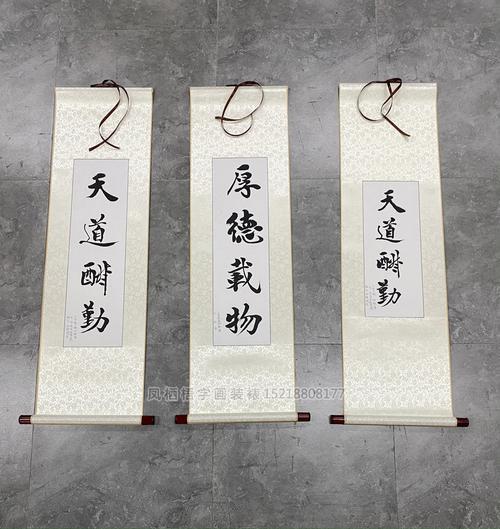 天道酬勤
厚德載物
天道酬勤
凤栖梧字画装裱15218808177